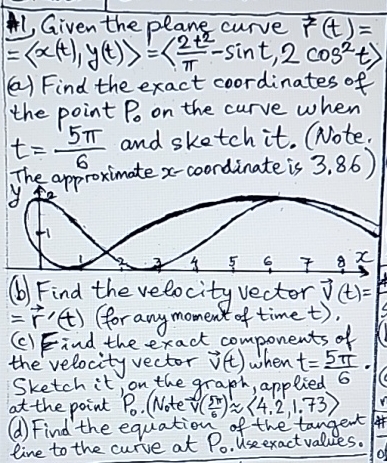 #1, Given the plane curve r⃗(t)=
=<x(t), y(t)>=<2t²/π - sint, 2 cos²t>
(a) Find the exact coordinates of
the point P₀ on the curve when
t= 5π/6 and sketch it. (Note.
The approximate x-coordinate is 3.86)
y 2
1
1 2 3 4 5 6 7 8 x
(b) Find the velocity vector V⃗(t)=
= r⃗'(t) (for any moment of time t).
(c) Find the exact components of
the velocity vector V⃗(t) when t= 5π/6.
Sketch it, on the graph, applied
at the point P₀. (Note V⃗(5π/6)≈<4.2, 1.73>
(d) Find the equation of the tangent
line to the curve at P₀. Use exact values.